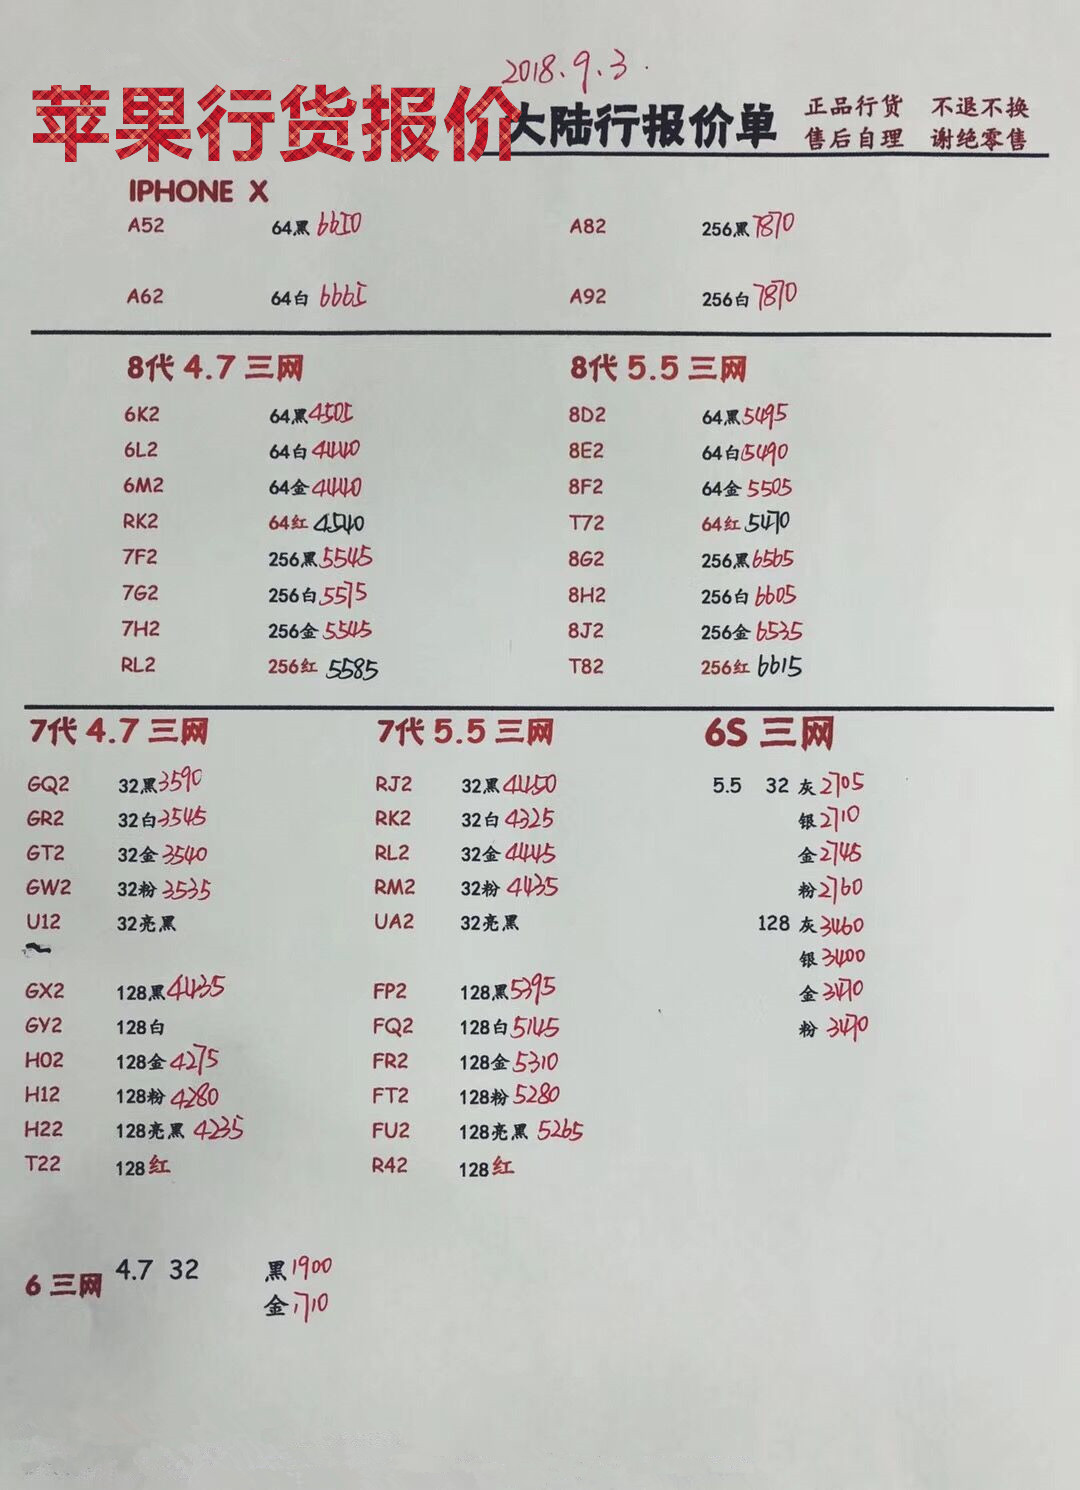 2018.9.3.
苹果行货报价
大陆行报价单
正品行货 不退不换
售后自理 谢绝零售
IPHONE X
A52 64黑 6610 A82 256黑 7870
A62 64白 A92 256白 7870
8代 4.7 三网 8代 5.5 三网
6K2 64黑 4505 8D2 64黑 5495
6L2 64白 4440 8E2 64白 5490
6M2 64金 4440 8F2 64金 5505
RK2 64红 4540 T72 64红 5470
7F2 256黑 5545 8G2 256黑 6565
7G2 256白 5575 8H2 256白 6605
7H2 256金 5545 8J2 256金 6535
RL2 256红 5585 T82 256红 6615
7代 4.7 三网 7代 5.5 三网 6S 三网
GQ2 32黑 3590 RJ2 32黑 4450 5.5 32 灰 2705
GR2 32白 3545 RK2 32白 4325 银 2710
GT2 32金 3540 RL2 32金 4445 金 2745
GW2 32粉 3535 RM2 32粉 4435 粉 2760
U12 32亮黑 UA2 32亮黑 128 灰 3460
银 3400
GX2 128黑 4435 FP2 128黑 5395 金 3470
GY2 128白 FQ2 128白 5145 粉 3470
H02 128金 4275 FR2 128金 5310
H12 128粉 4280 FT2 128粉 5280
H22 128亮黑 4235 FU2 128亮黑 5265
T22 128红 R42 128红
6 三网 4.7 32 黑 1900
金 1710